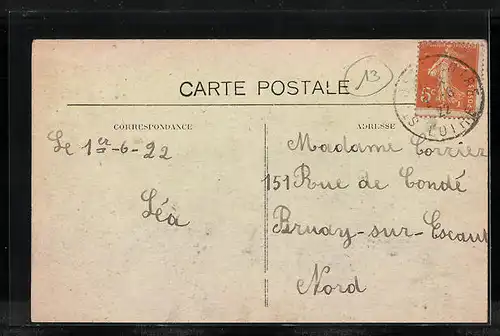 13
CARTE POSTALE
CORRESPONDANCE
ADRESSE
5c
LOIRE
Le 1er-6-22
Léa
Madame Corrier
151 Rue de Condé
Bruay-sur-Escaut
Nord